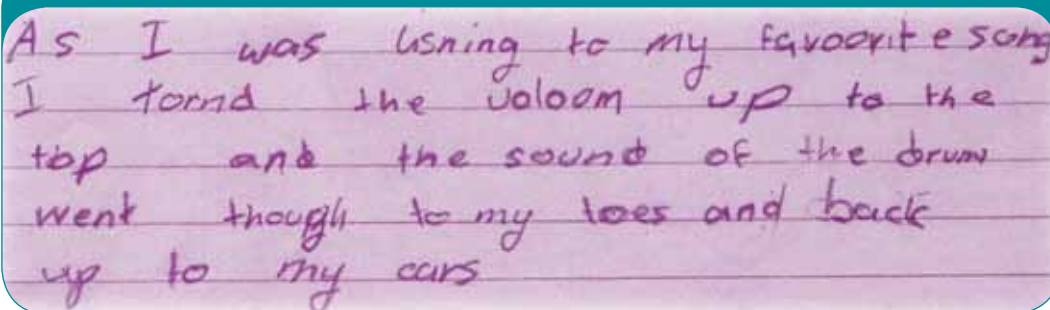 As I was lisning to my favoorite song
I tornd the voloom up to the
top and the sound of the drum
went though to my toes and back
up to my ears